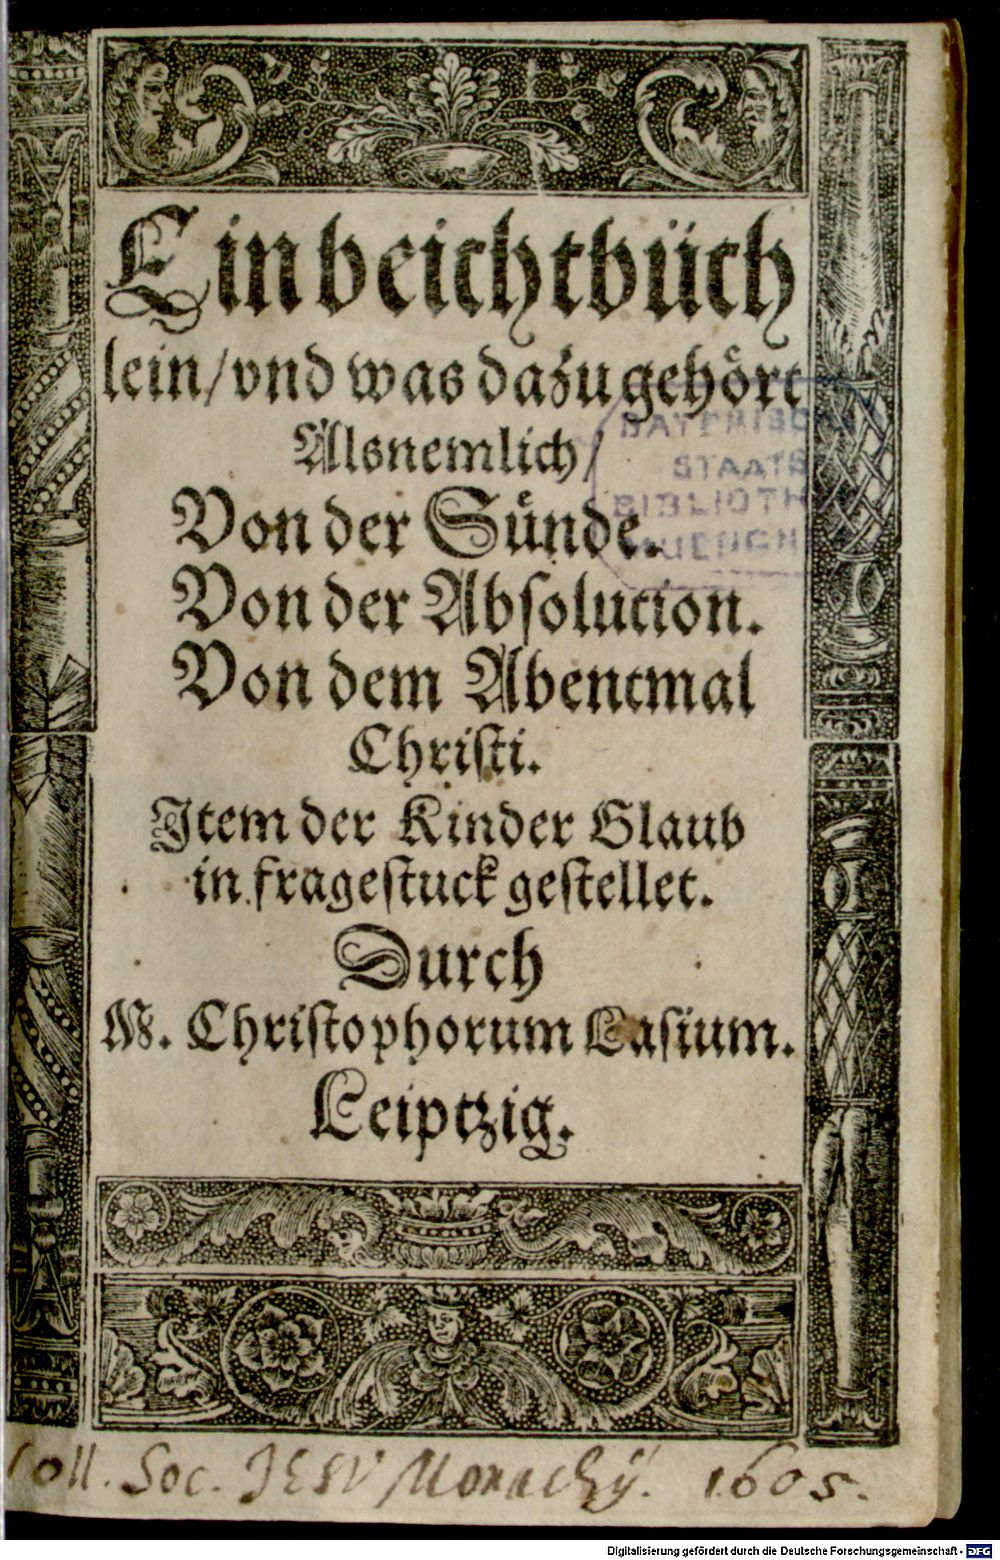 Ein beichtbüch
lein/ vnd was dazu gehört
Alsnemlich/
Von der Sünde.
Von der Absolution.
Von dem Abentmal
Christi.
Item der Kinder Glaub
in fragestuck gestellet.
Durch
M. Christophorum Lasium.
Leiptzig.
BAYERISCHE
STAATS
BIBLIOTH
MUENCHEN
Coll. Soc. JESV Monachij. 1605.
Digitalisierung gefördert durch die Deutsche Forschungsgemeinschaft - DFG